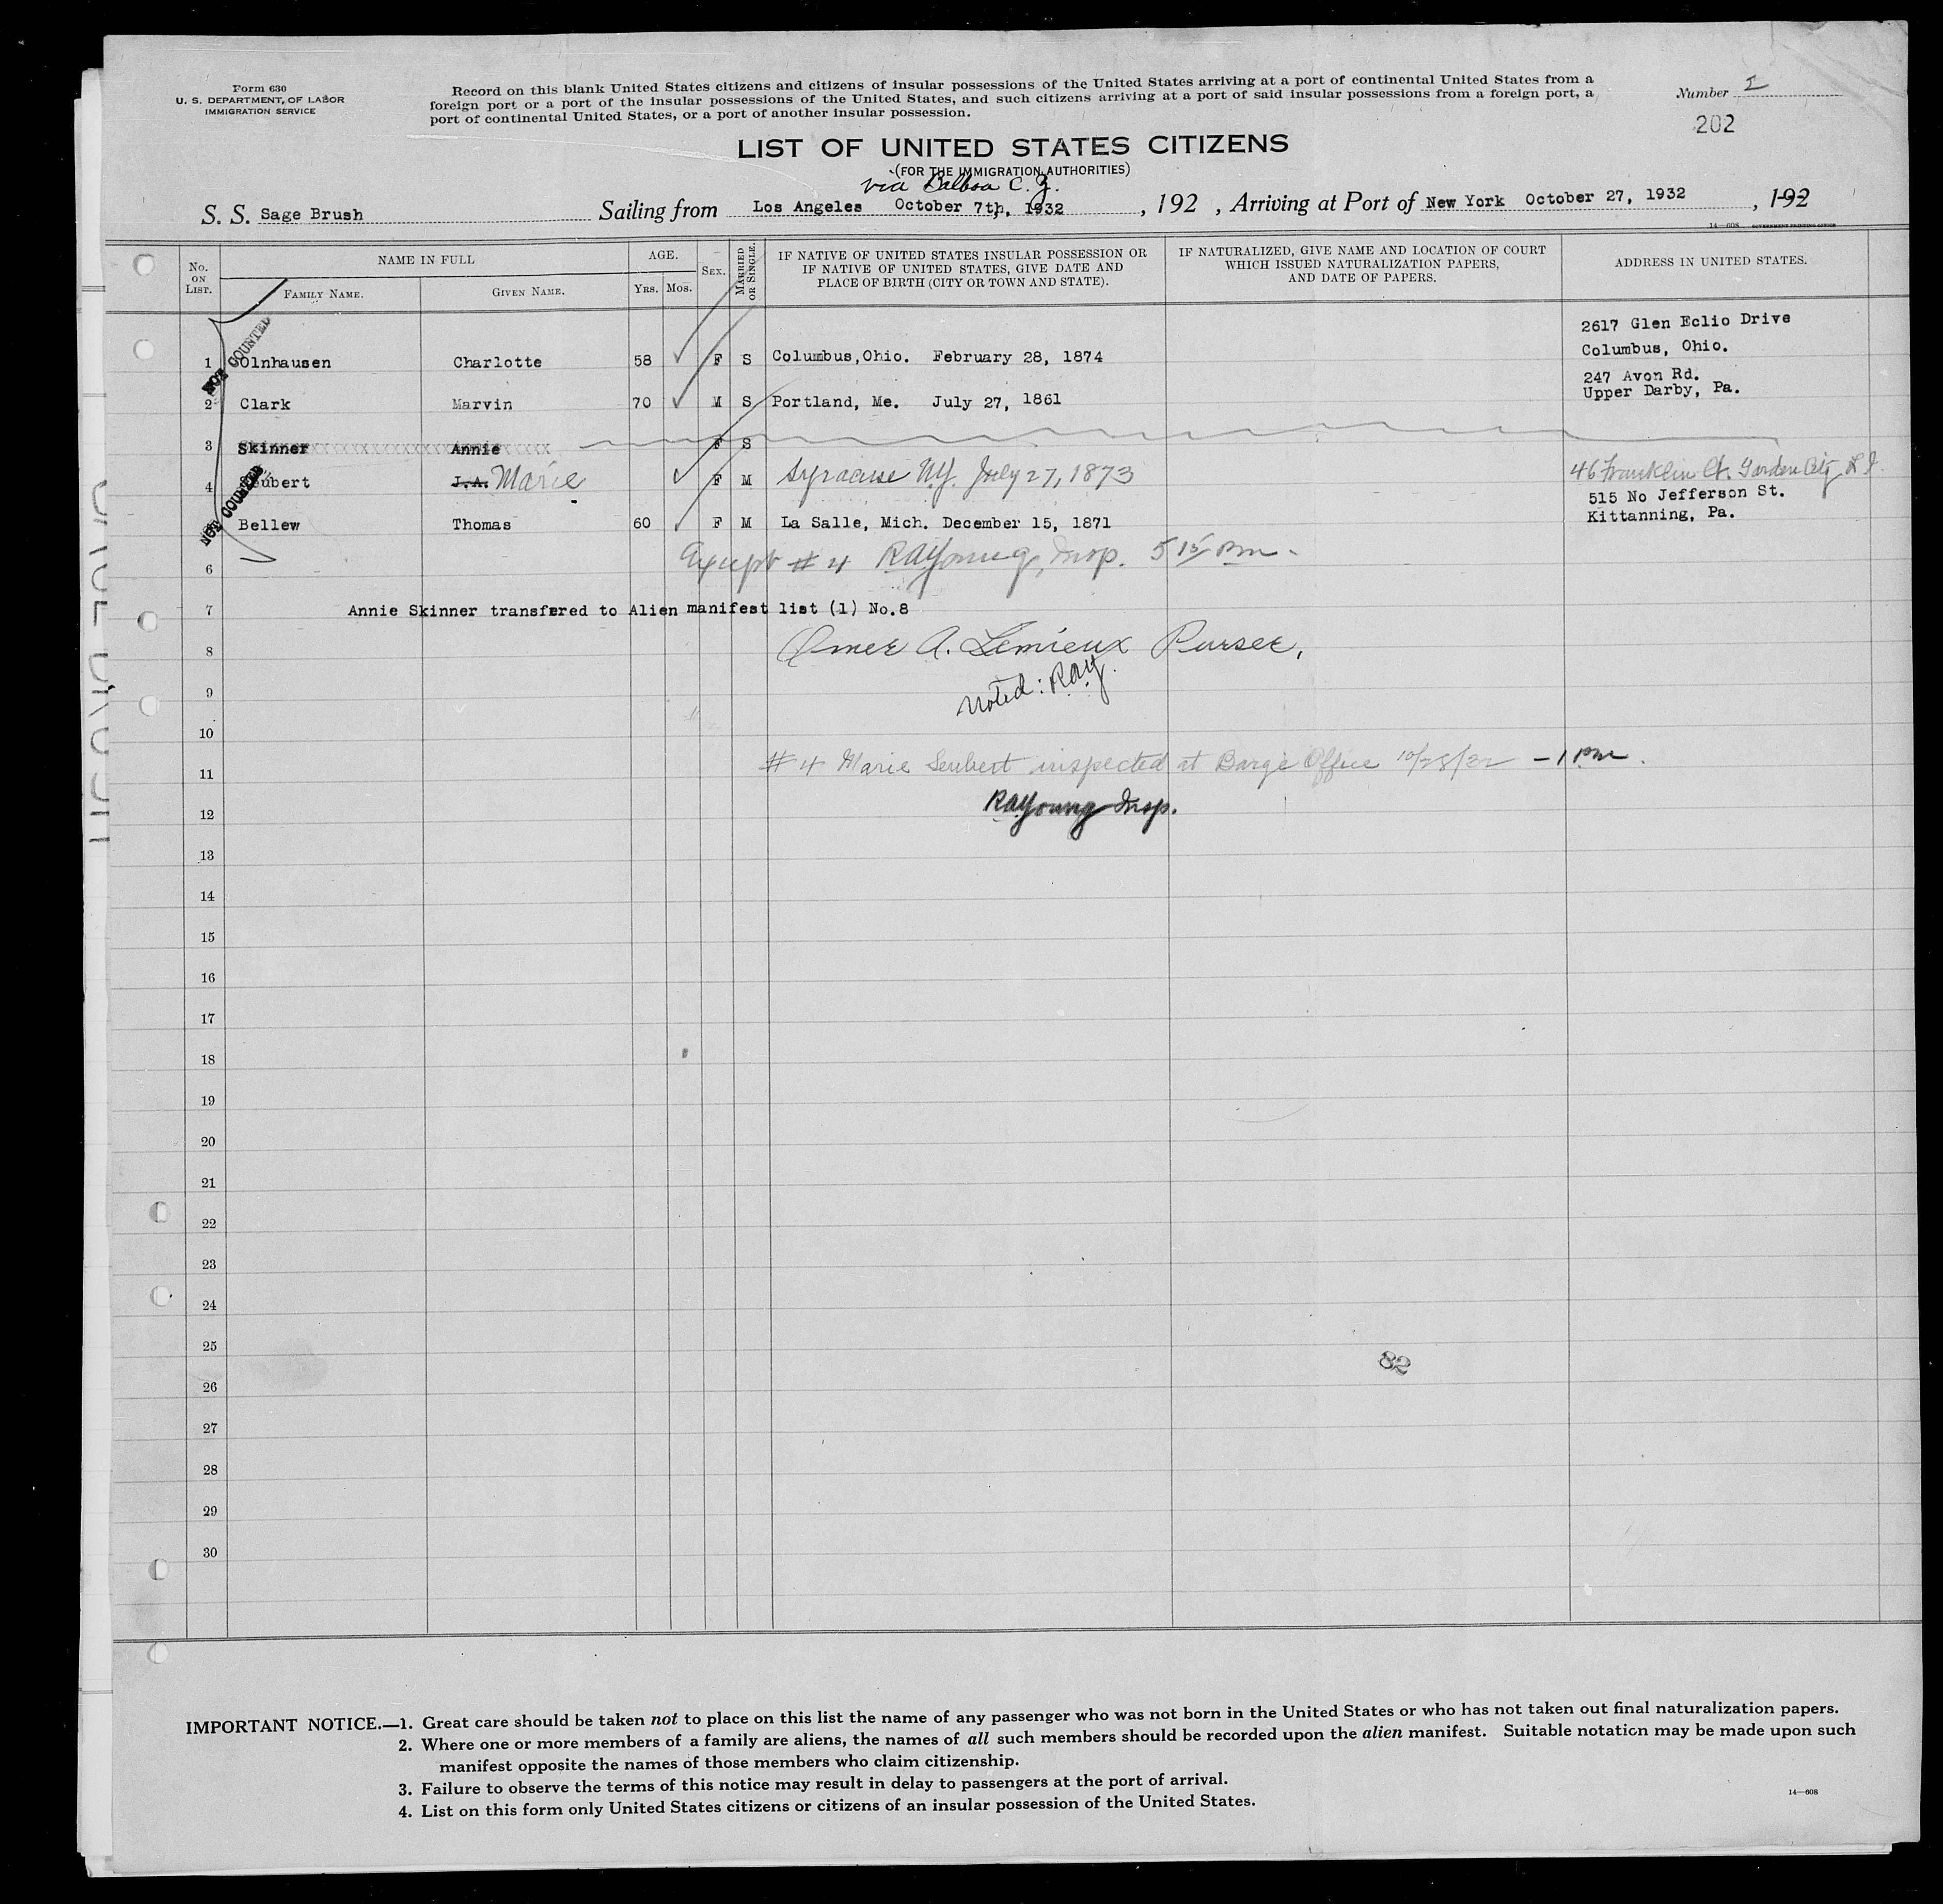 Form 630
U. S. DEPARTMENT OF LABOR
IMMIGRATION SERVICE
Record on this blank United States citizens and citizens of insular possessions of the United States arriving at a port of continental United States from a
foreign port or a port of the insular possessions of the United States, and such citizens arriving at a port of said insular possessions from a foreign port, a
port of continental United States, or a port of another insular possession.
Number I
202
LIST OF UNITED STATES CITIZENS
(FOR THE IMMIGRATION AUTHORITIES)
via Balboa C.Z.
S. S. Sage Brush Sailing from Los Angeles October 7th, 1932, 192 , Arriving at Port of New York October 27, 1932, 192
14—608 GOVERNMENT PRINTING OFFICE
No. ON LIST. NAME IN FULL FAMILY NAME. GIVEN NAME. AGE. YRS. MOS. SEX. MARRIED OR SINGLE.
IF NATIVE OF UNITED STATES INSULAR POSSESSION OR
IF NATIVE OF UNITED STATES, GIVE DATE AND
PLACE OF BIRTH (CITY OR TOWN AND STATE).
IF NATURALIZED, GIVE NAME AND LOCATION OF COURT
WHICH ISSUED NATURALIZATION PAPERS,
AND DATE OF PAPERS.
ADDRESS IN UNITED STATES.
NOT COUNTED
2617 Glen Eclio Drive
1 Olnhausen Charlotte 58 F S Columbus,Ohio. February 28, 1874 Columbus, Ohio.
247 Avon Rd.
2 Clark Marvin 70 M S Portland, Me. July 27, 1861 Upper Darby, Pa.
3 Skinner Annie F S
NOT COUNTED
4 Seubert J.A. Marie F M Syracuse N.Y. July 27, 1873 46 Franklin Ct. Garden City L.I.
515 No Jefferson St.
5 Bellew Thomas 60 F M La Salle, Mich. December 15, 1871 Kittanning, Pa.
Except #4 RAYoung, Insp. 5 15 Pm.
6
7 Annie Skinner transfered to Alien manifest list (1) No.8
8 Omer A. Lemieux Purser,
Noted: RAY.
9
10
11 #4 Marie Seubert inspected at Barge Office 10/28/32 — 1 Pm.
12 RAYoung Insp.
13
14
15
16
17
18
19
20
21
22
23
24
25
82
26
27
28
29
30
IMPORTANT NOTICE.—1. Great care should be taken not to place on this list the name of any passenger who was not born in the United States or who has not taken out final naturalization papers.
2. Where one or more members of a family are aliens, the names of all such members should be recorded upon the alien manifest. Suitable notation may be made upon such
manifest opposite the names of those members who claim citizenship.
3. Failure to observe the terms of this notice may result in delay to passengers at the port of arrival.
4. List on this form only United States citizens or citizens of an insular possession of the United States.
14—608